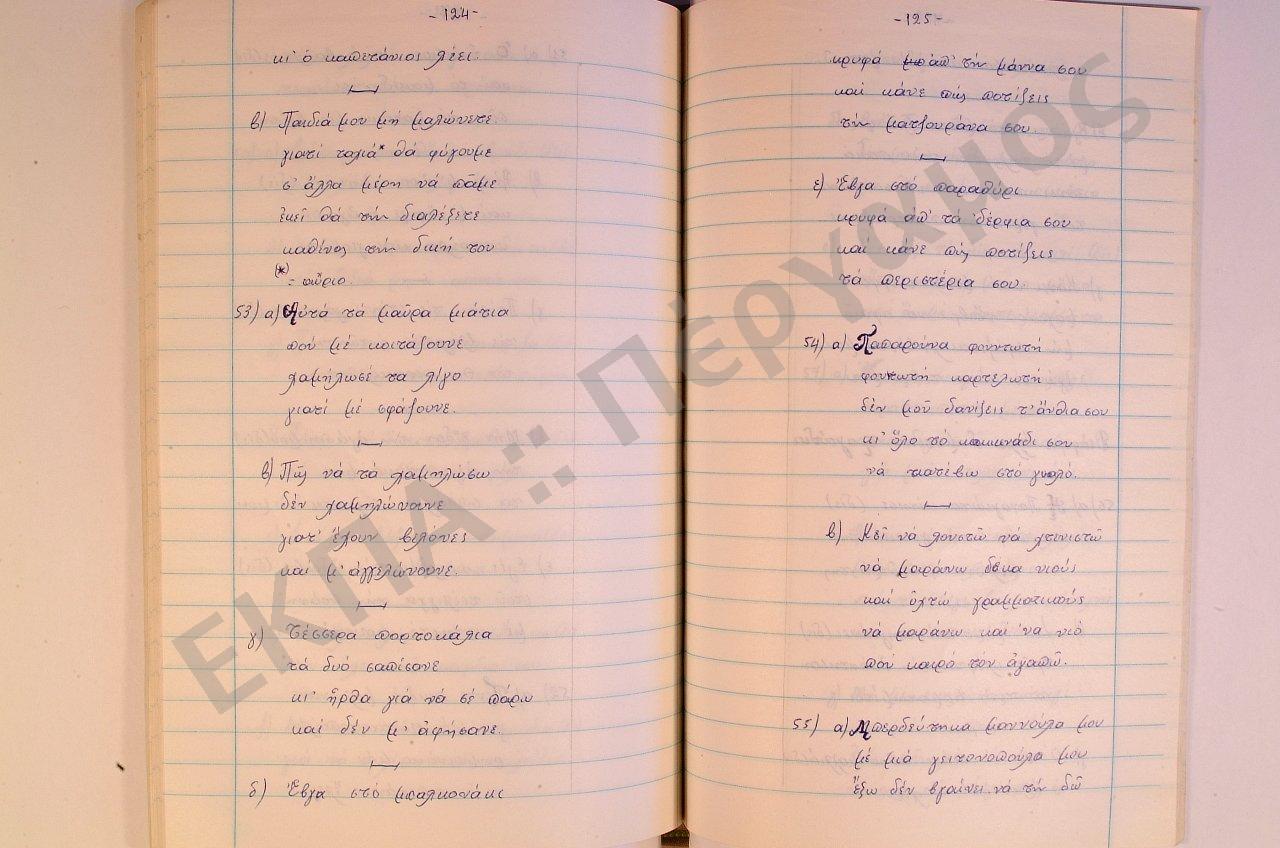 -124-
κι' ὁ καπετάνιος λέει.
β) Παιδιά μου μή μαλώνετε
γιατί ταχιά* θά φύγουμε
σ' ἄλλα μέρη νά πᾶμε
ἐκεῖ θά τήν διαλέξετε
καθένας τήν δική του
(*) = αὔριο.
53) α) Αὐτά τά μαῦρα μάτια
πού μέ κοιτάζουνε
χαμήλωσέ τα λίγο
γιατί μέ σφάζουνε.
β) Πῶς νά τά χαμηλώσω
δέν χαμηλώνουνε
γιατ' ἔχουν βελόνες
καί μ' ἀγγελώνουνε.
γ) Τέσσερα πορτοκάλια
τά δυό σαπίσανε
κι' ἦρθα γιά νά σέ πάρω
καί δέν μ' ἀφήσανε.
δ) Ἔβγα στό μπαλκονάκι
-125-
κρυφά ἀπ' τήν μάννα σου
καί κάνε πώς ποτίζεις
τήν ματζουράνα σου.
ε) Ἔβγα στό παραθύρι
κρυφά ἀπ' τά 'δέρφια σου
καί κάνε πώς ποτίζεις
τά περιστέρια σου.
54) α) Παπαρούνα φουντωτή
φουντωτή καρτελωτή
δέν μοῦ δανίζεις τ' ἄνθια σου
κι' ὅλο τό κοκκινάδι σου
νά κατέβω στό γυαλό.
β) Κεῖ νά λουστῶ νά χτενιστῶ
νά μαράνω δέκα νιούς
καί ὀχτώ γραμματικούς
νά μαράνω καί 'να νιό
πού καιρό τόν ἀγαπῶ.
55) α) Μπερδεύτηκα μαννούλα μου
μέ μιά γειτονοπούλα μου
ἔξω δέν βγαίνει νά τήν δῶ
ΕΚΠΑ .:. Πέργαμος